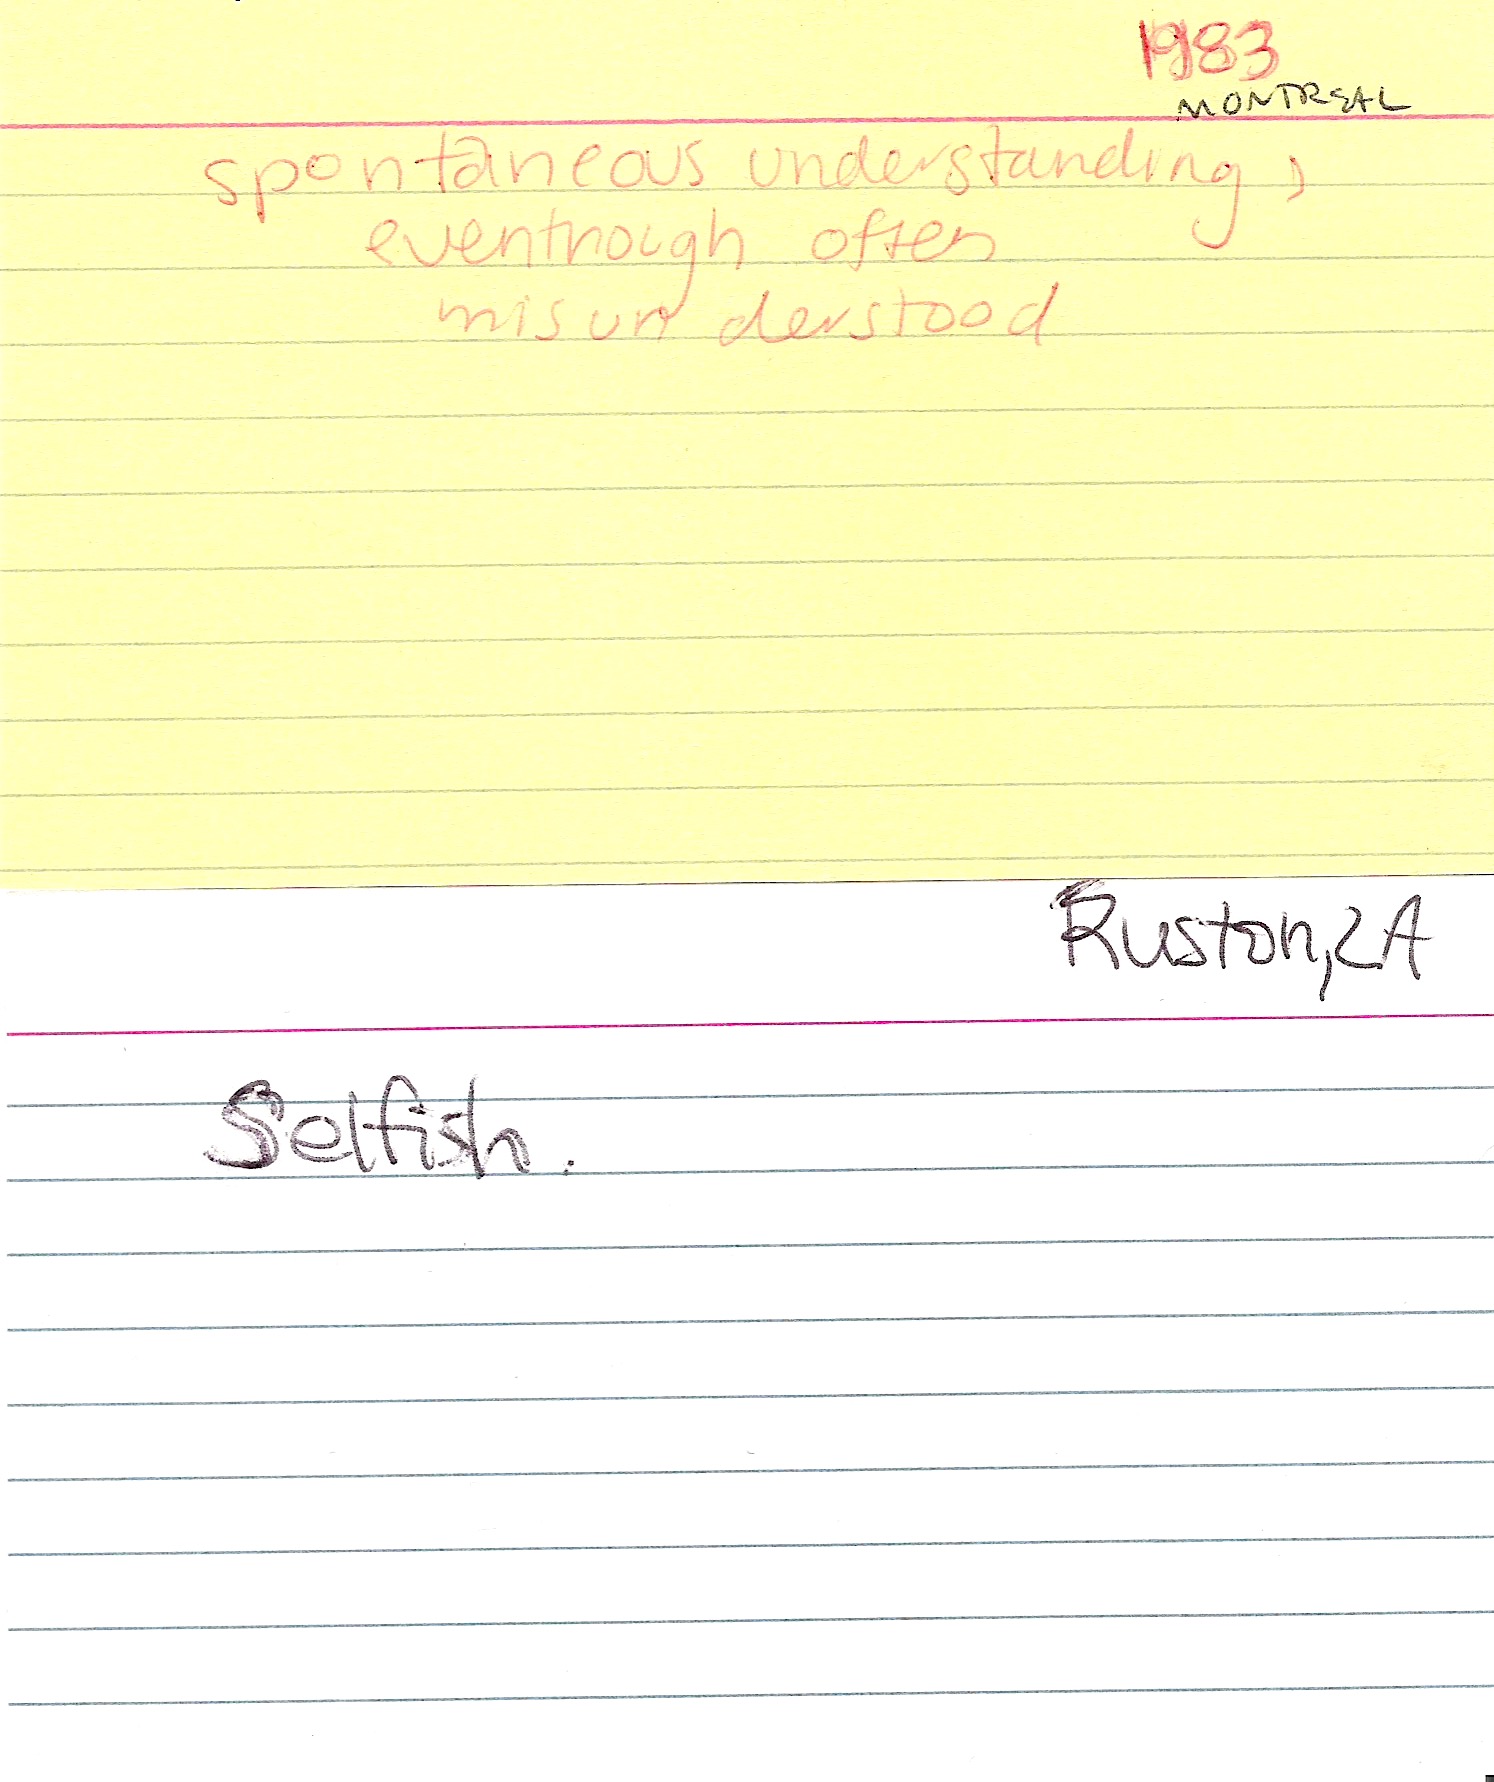 1983
MONTREAL
spontaneous understanding,
eventhough often
misunderstood
Ruston, LA
Selfish.